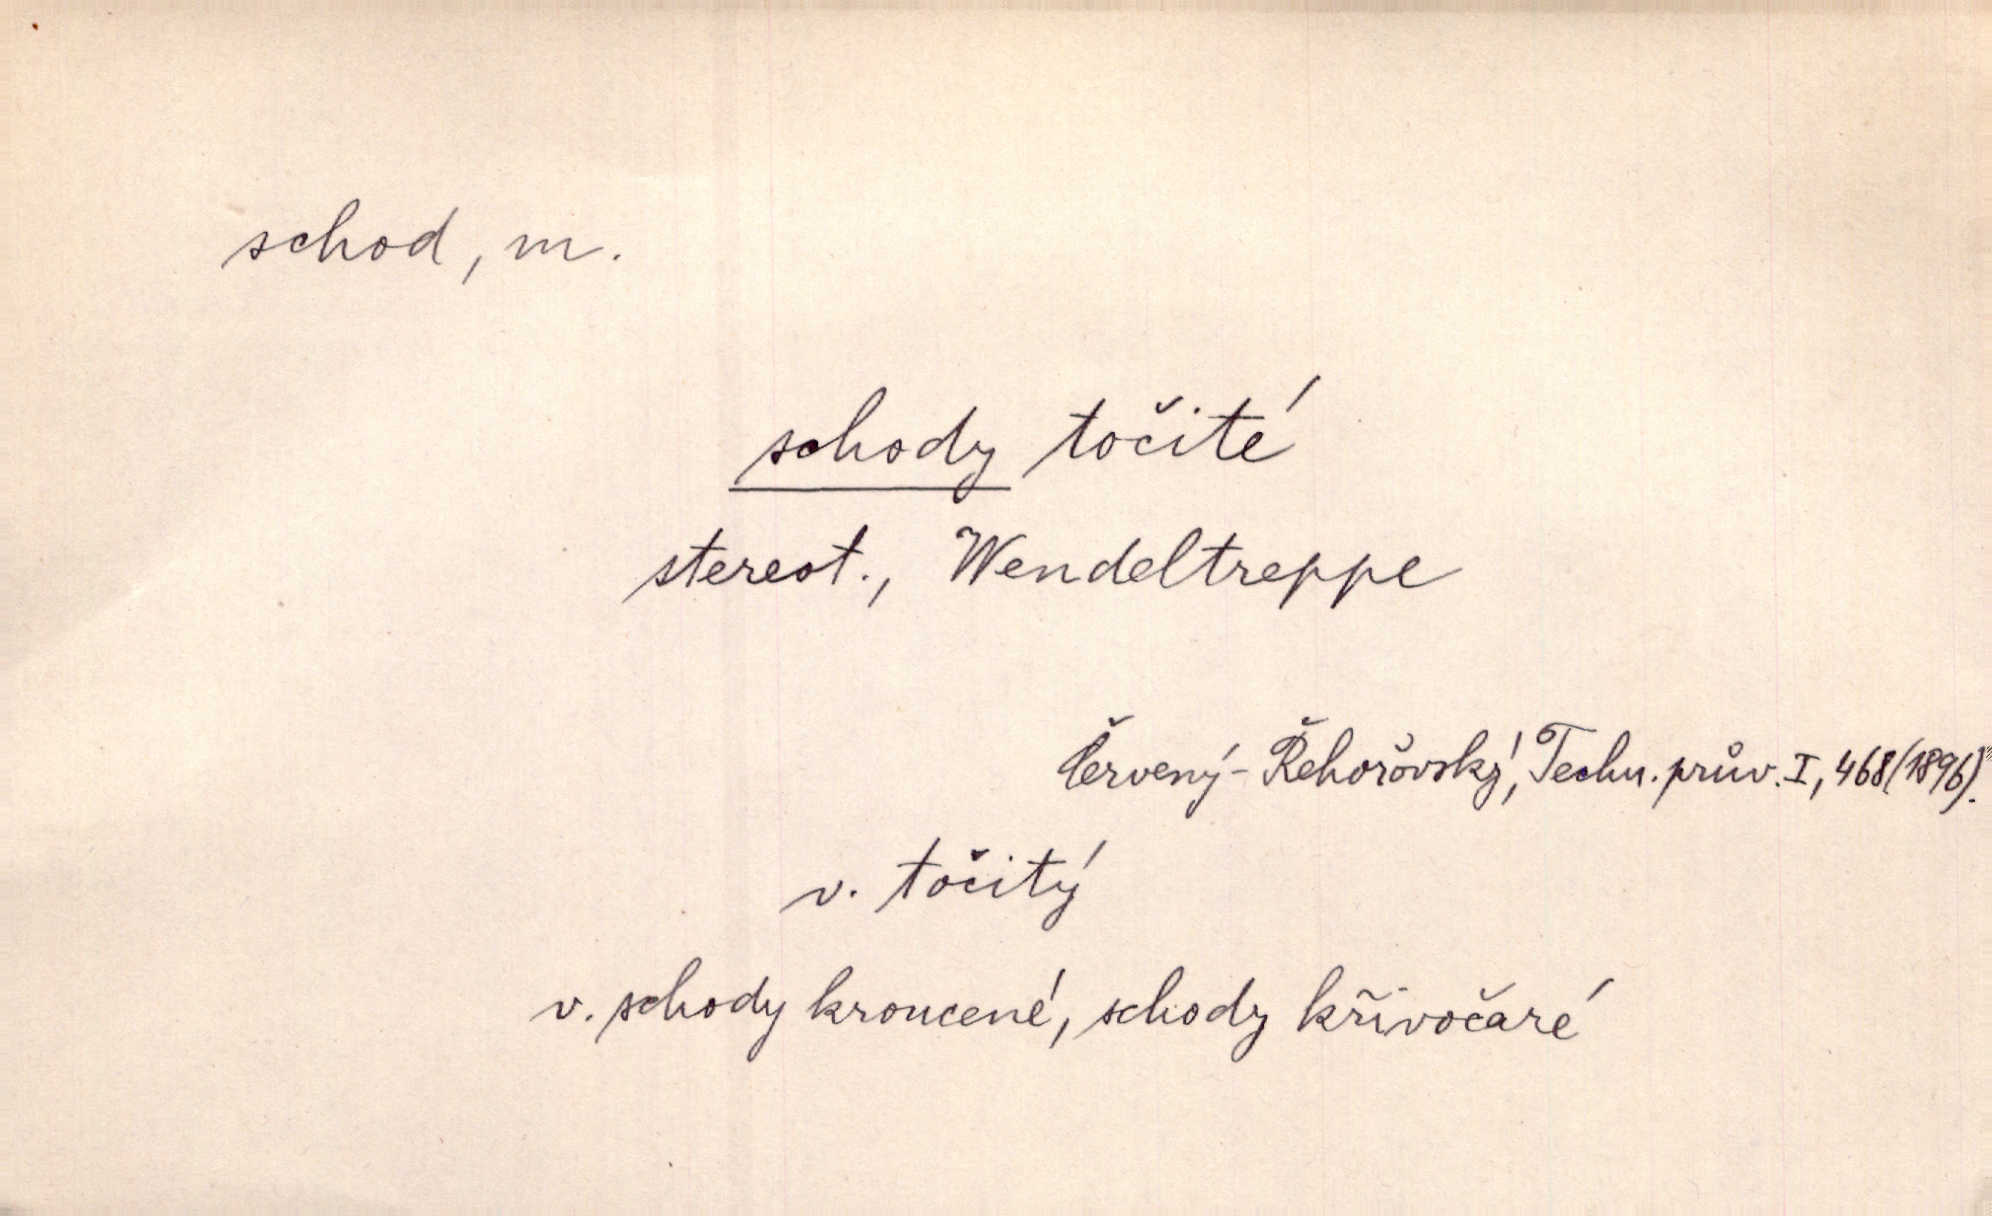 schod, m.
schody točité
stereot., Wendeltreppe
Červený-Řehořovský, Techn. prův. I, 468 (1896).
v. točitý
v. schody kroucené, schody křivočaré